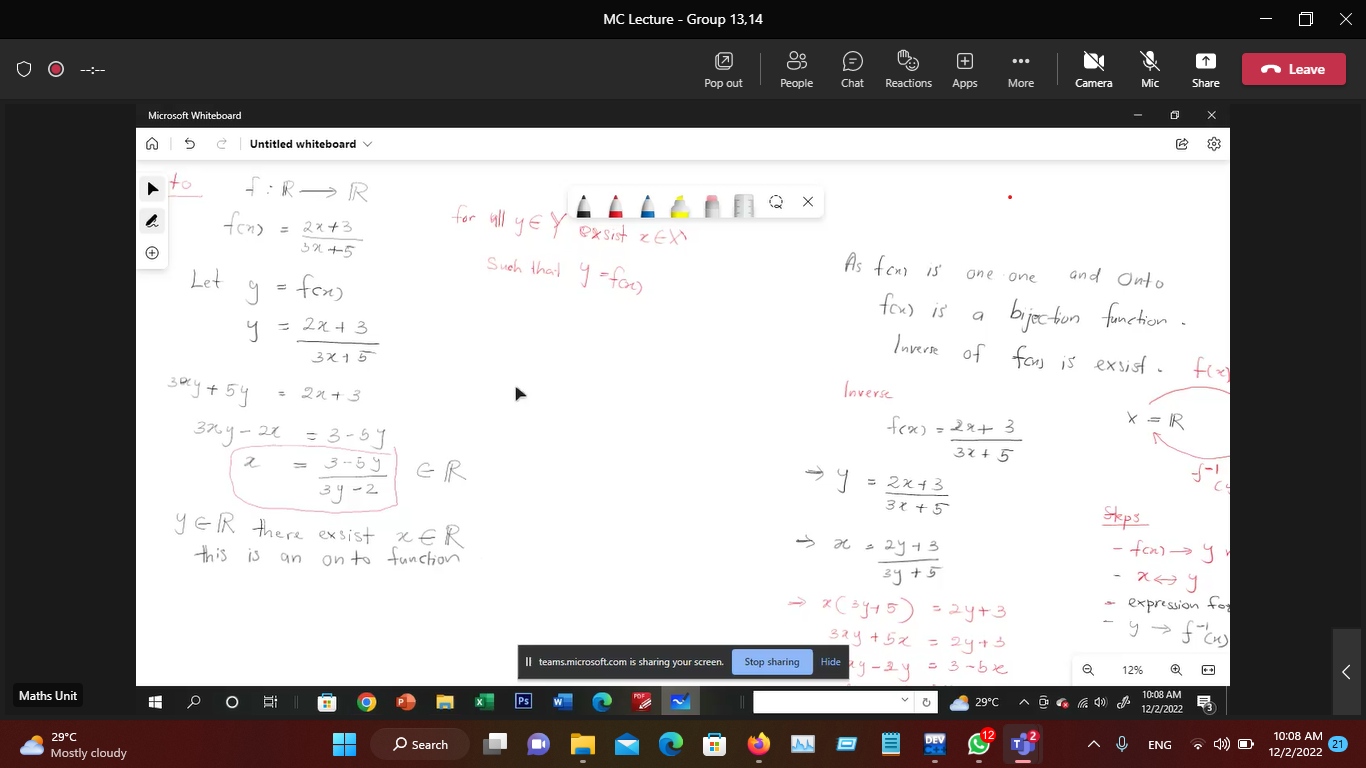 MC Lecture - Group 13,14
--:--
Pop out
People
Chat
Reactions
Apps
More
Camera
Mic
Share
Leave
Microsoft Whiteboard
Untitled whiteboard
to f : ℝ → ℝ
f(x) = 2x+3 / 3x+5
Let y = f(x)
y = 2x+3 / 3x+5
3xy + 5y = 2x+3
3xy - 2x = 3-5y
x = 3-5y / 3y-2 ∈ ℝ
y ∈ ℝ there exsist x ∈ ℝ
this is an on to function
for all y ∈ Y exsist x ∈ X
Such that y = f(x)
As f(x) is one one and Onto
f(x) is a bijection function.
Inverse of f(x) is exsist.
Inverse
f(x) = 2x+3 / 3x+5
⇒ y = 2x+3 / 3x+5
⇒ x = 2y+3 / 3y+5
⇒ x(3y+5) = 2y+3
3xy + 5x = 2y+3
xy - 2y = 3-5x
f(x)
X = ℝ
f⁻¹
Steps
- f(x) → y
- x ↔ y
- expression for
- y → f⁻¹(x)
teams.microsoft.com is sharing your screen.
Stop sharing
Hide
12%
Maths Unit
29°C
10:08 AM
12/2/2022
3
29°C
Mostly cloudy
Search
DEV
12
2
ENG
10:08 AM
12/2/2022
21